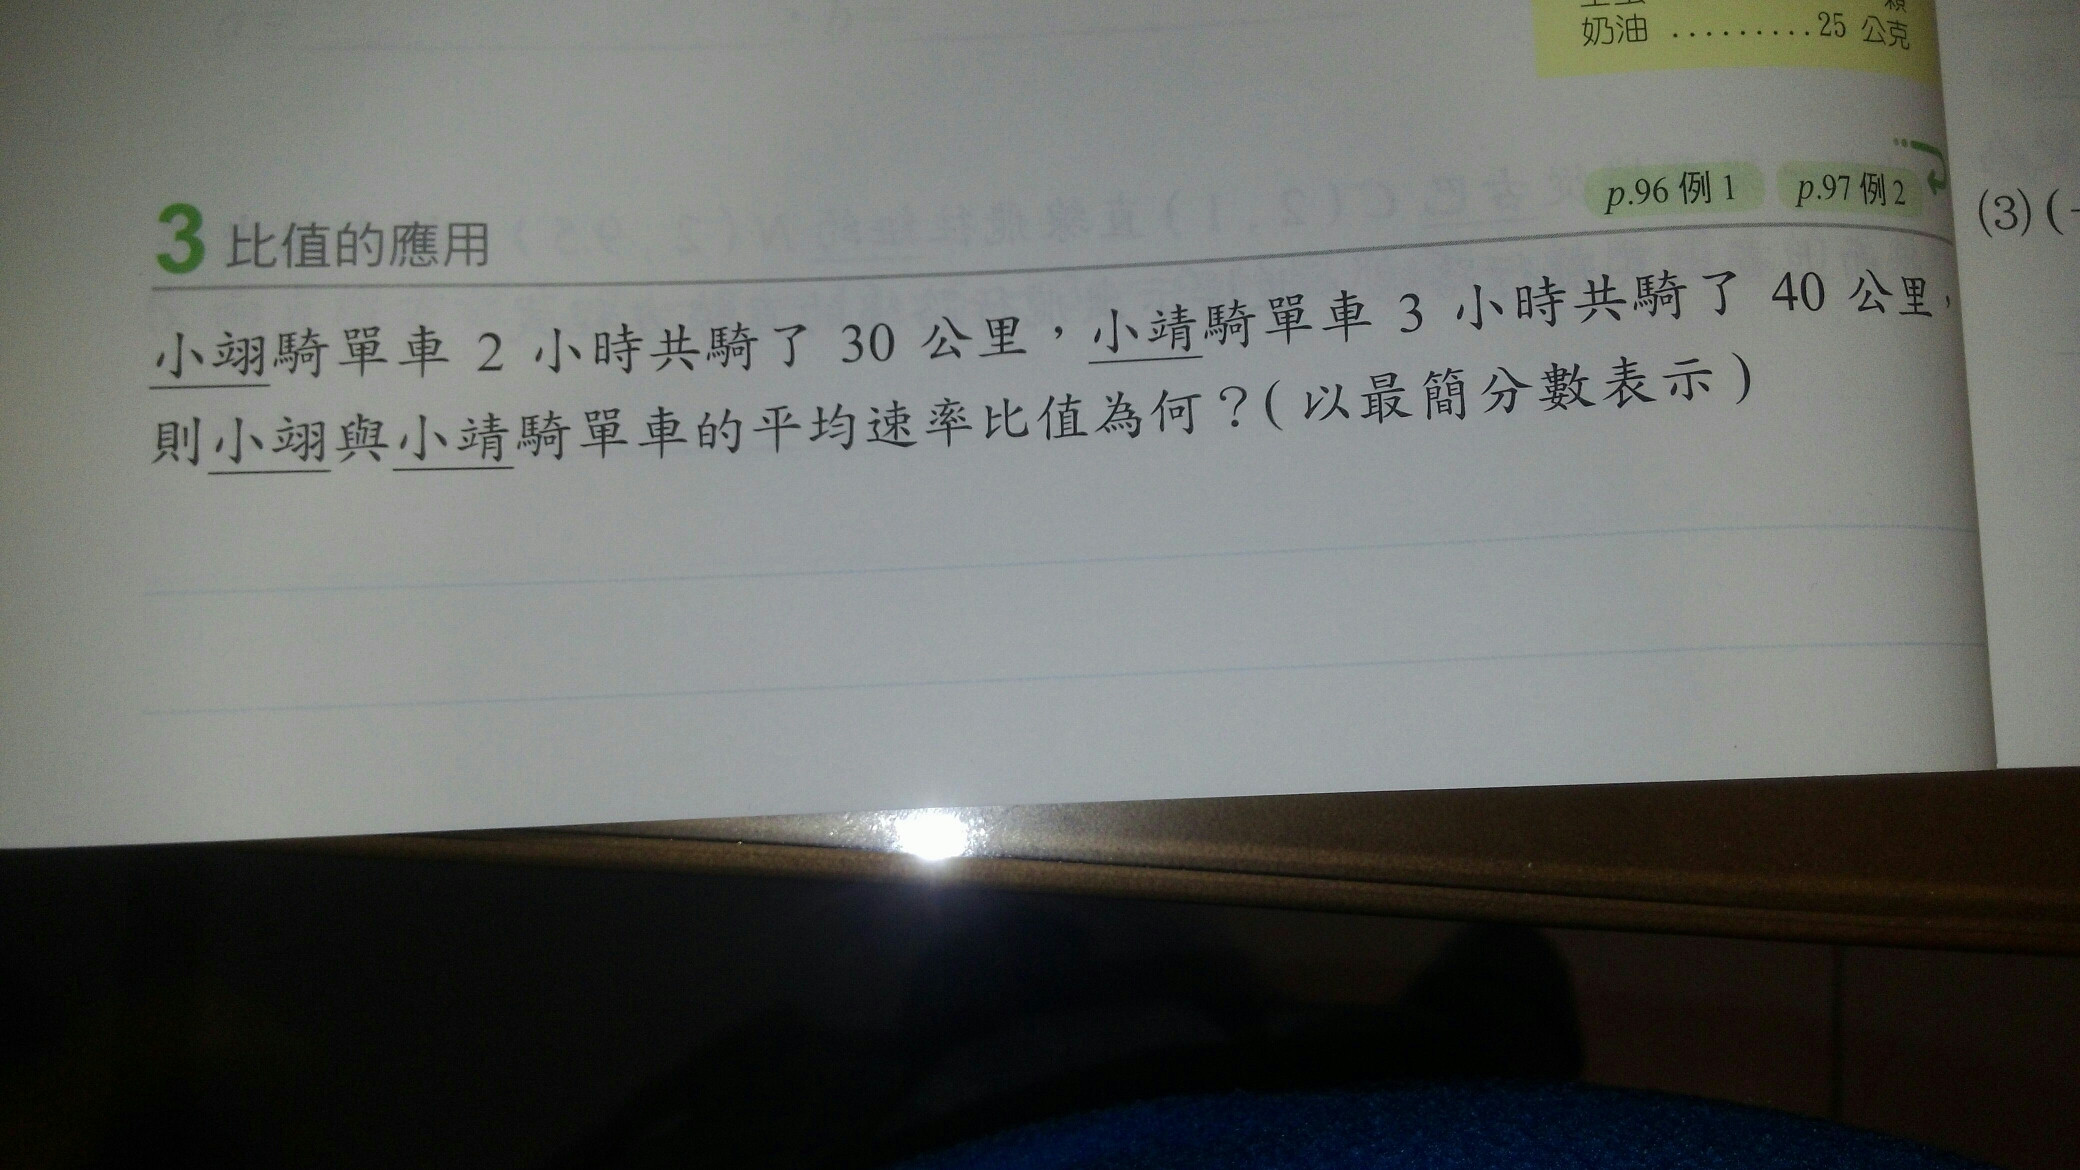 奶油 .........25 公克
p.96 例 1 p.97 例 2
3 比值的應用
小翊騎單車 2 小時共騎了 30 公里，小靖騎單車 3 小時共騎了 40 公里，
則小翊與小靖騎單車的平均速率比值為何？(以最簡分數表示)
(3)(